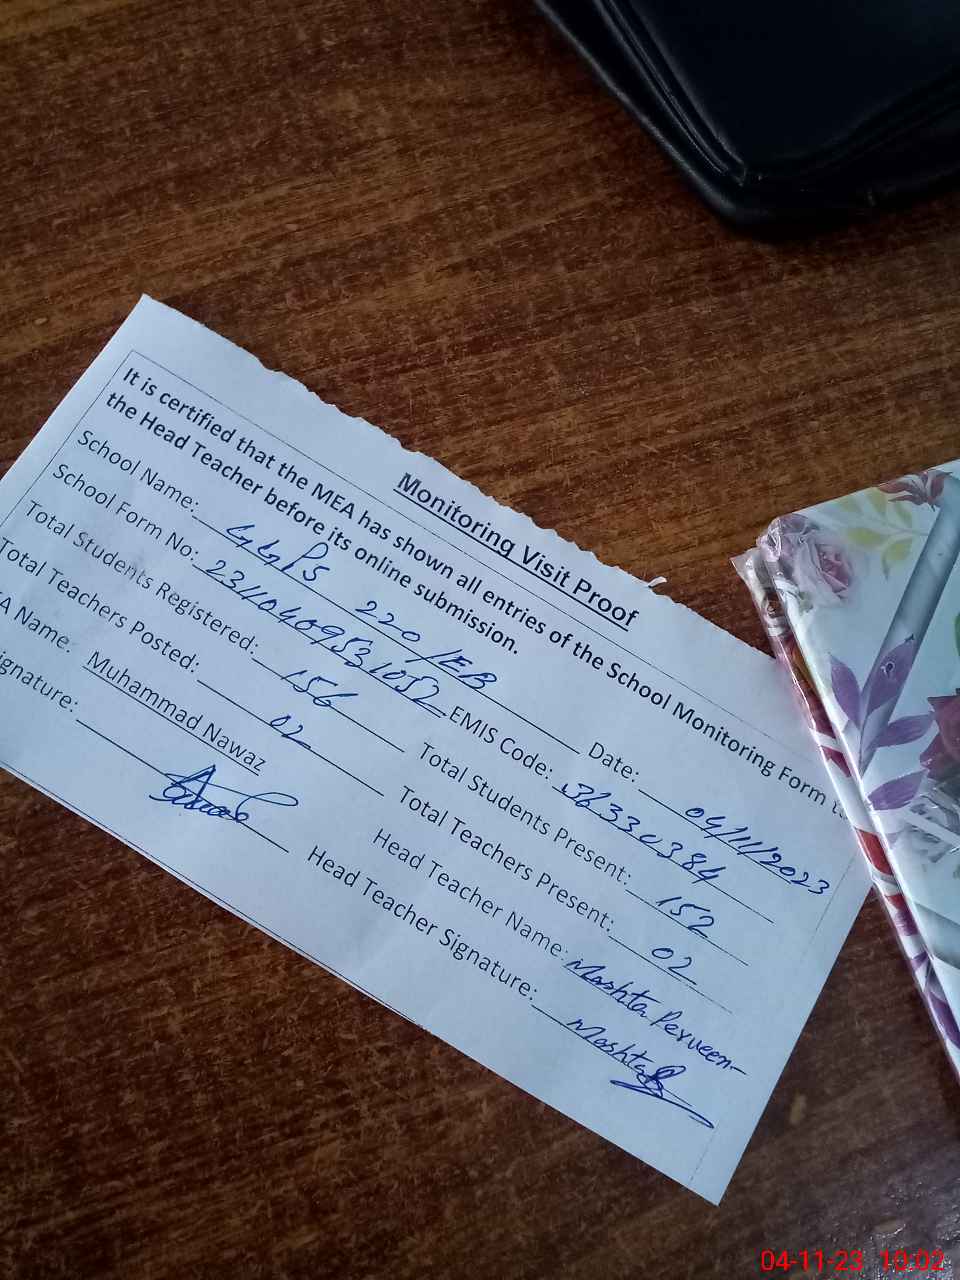 Monitoring Visit Proof
It is certified that the MEA has shown all entries of the School Monitoring Form
the Head Teacher before its online submission.
School Name: GGPS 220/EB Date: 04/11/2023
School Form No: 2340409531052 EMIS Code: 36330384
Total Students Registered: 156 Total Students Present: 152
Total Teachers Posted: 02 Total Teachers Present: 02
Name: Muhammad Nawaz Head Teacher Name: Mashta Perveen
ignature: Head Teacher Signature: Mashta
04-11-23 10:02